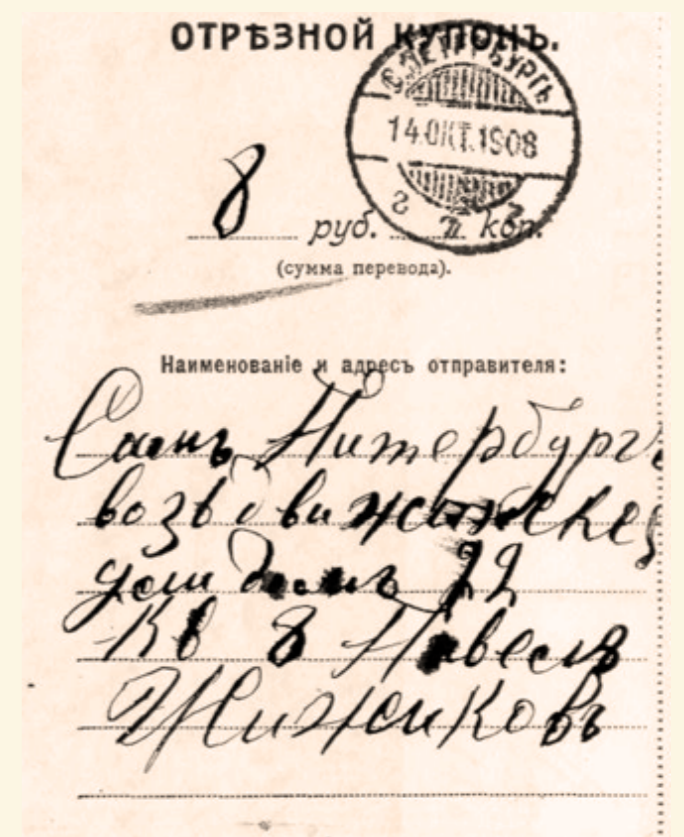 ОТРѢЗНОЙ КУПОНЪ.
С.ПЕТЕРБУРГЪ
14.ОКТ.1908
8 руб. коп.
(сумма перевода).
Наименованіе и адресъ отправителя:
Санъ Питербургъ
возвдвиженскея
ули домъ 22
Кв 8 Павелъ
Жижиковъ